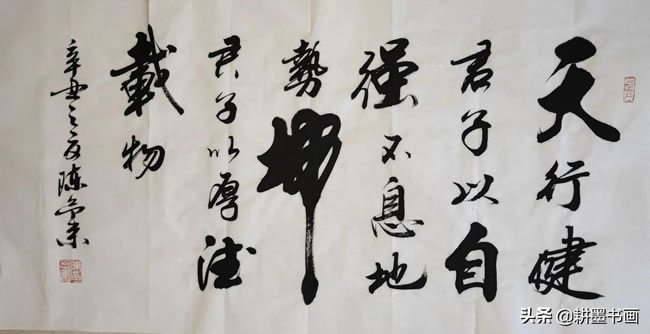 天行健
君子以自
强不息地
勢坤
君子以厚德
載物
辛丑之夏陈
头条 @耕墨书画